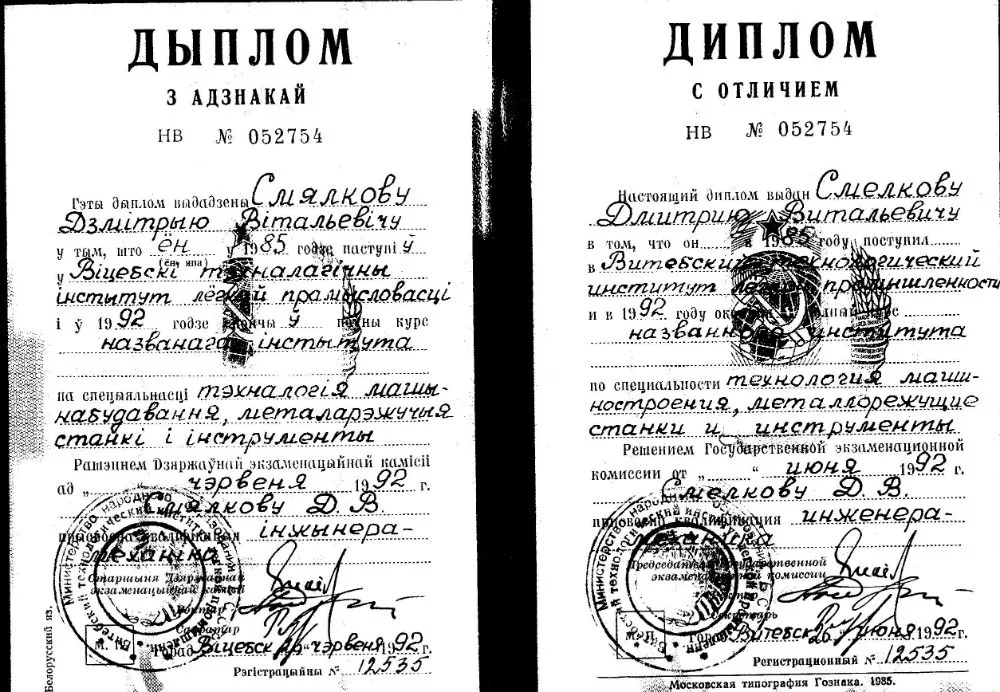 ДЫПЛОМ
З АДЗНАКАЙ
НВ № 052754
Гэты дыплом выдадзены Смялкову
Дзмітрыю Вітальевічу
у тым, што ён у 1985 годзе паступіў
(ён, яна)
у Віцебскі тэхналагічны
інстытут лёгкай прамысловасці
і ў 1992 годзе скончыў поўны курс
названага інстытута
па спецыяльнасці тэхналогія машы-
набудавання, металарэжучыя
станкі і інструменты
Рашэннем Дзяржаўнай экзаменацыйнай камісіі
ад „ “ чэрвеня 1992 г.
Смялкову Д. В.
прысвоена кваліфікацыя інжынера-
механіка
Старшыня Дзяржаўнай
экзаменацыйнай камісіі
Рэктар
Сакратар
М. П.
Горад Віцебск чэрвеня 1992 г.
Рэгістрацыйны № 12535
Белорусский яз.
ДИПЛОМ
С ОТЛИЧИЕМ
НВ № 052754
Настоящий диплом выдан Смелкову
Дмитрию Витальевичу
в том, что он в 1985 году поступил
в Витебский технологический
институт легкой промышленности
и в 1992 году окончил полный курс
названного института
по специальности технология маши-
ностроения, металлорежущие
станки и инструменты
Решением Государственной экзаменационной
комиссии от „ “ июня 1992 г.
Смелкову Д. В.
присвоена квалификация инженера-
механика
Председатель Государственной
экзаменационной комиссии
Секретарь
М. П.
Город Витебск 26 июня 1992 г.
Регистрационный № 12535
Московская типография Гознака. 1985.